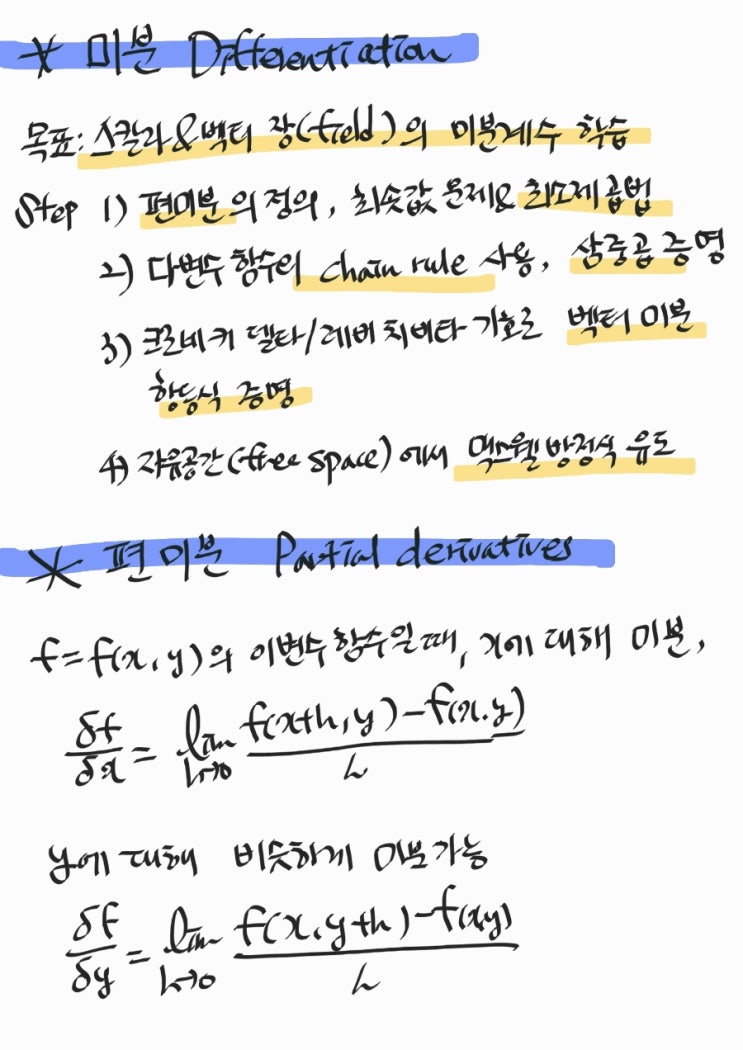 * 미분 Differentiation
목표: 스칼라&벡터 장(field)의 미분계수 학습
Step 1) 편미분의 정의, 최솟값 문제& 최소제곱법
2) 다변수 함수의 chain rule 사용, 삼중곱 증명
3) 크로네커 델타/레비 치비타 기호로 벡터 미분
항등식 증명
4) 자유공간(free space)에서 맥스웰 방정식 유도
* 편미분 Partial derivatives
f=f(x, y)의 이변수 함수일 때, x에 대해 미분,
δf/δx = lim h→0 f(x+h, y)-f(x.y) / h
y에 대해 비슷하게 미분가능
δf/δy = lim h→0 f(x, y+h)-f(x,y) / h